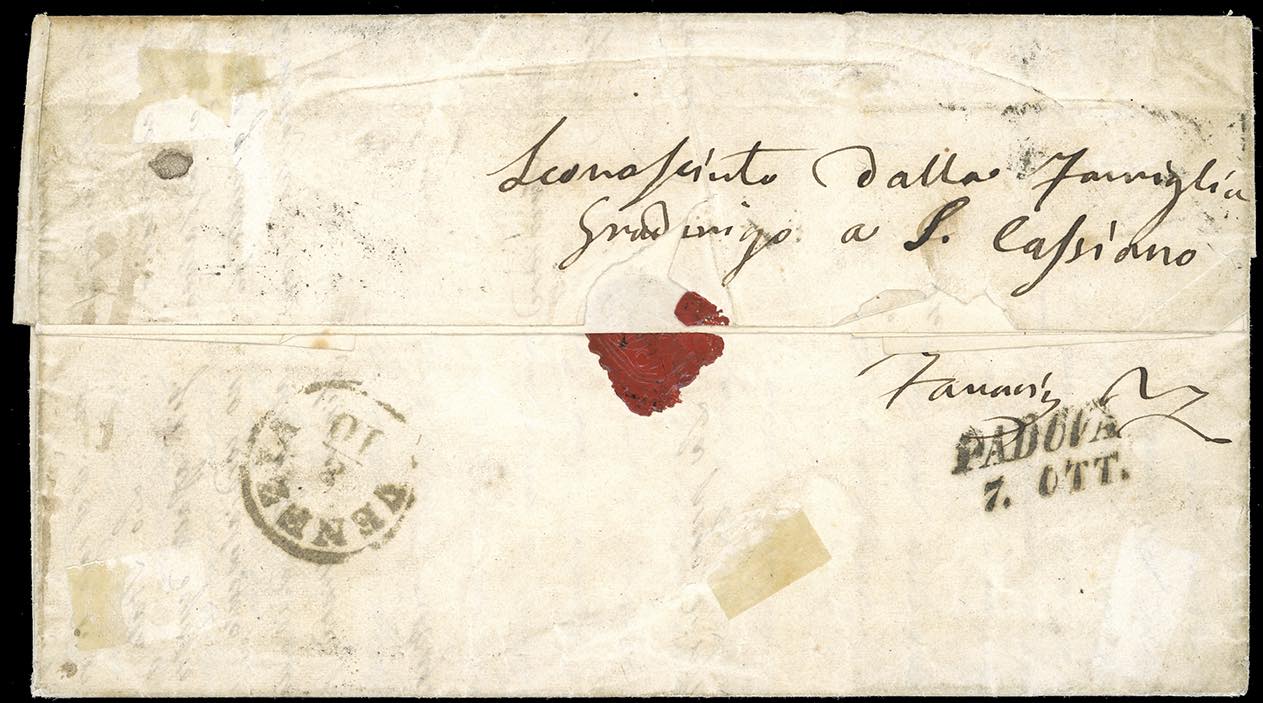 Sconosciuto dalla Famiglia
Gradinigo a S. Cassiano
PADOVA
7. OTT.
VENEZIA
10